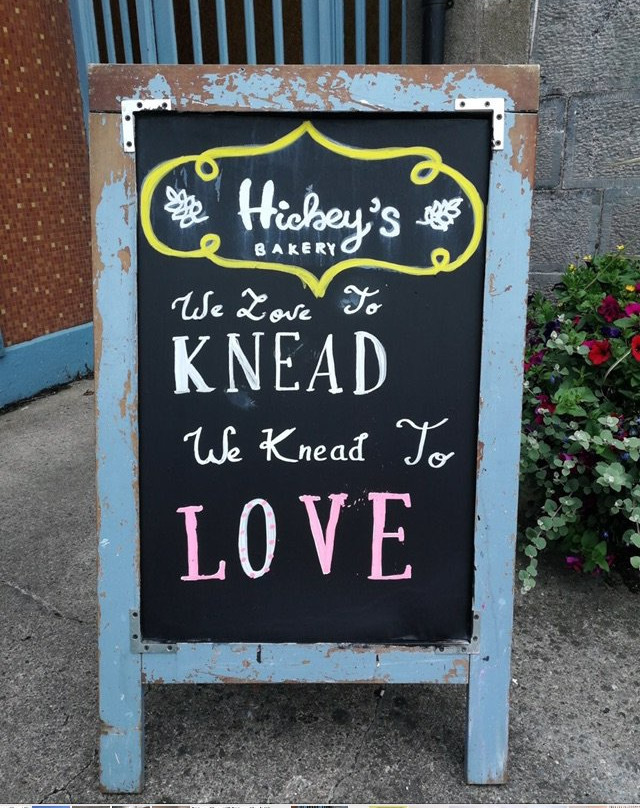 Hickey's
BAKERY
We Love To
KNEAD
We Knead To
LOVE